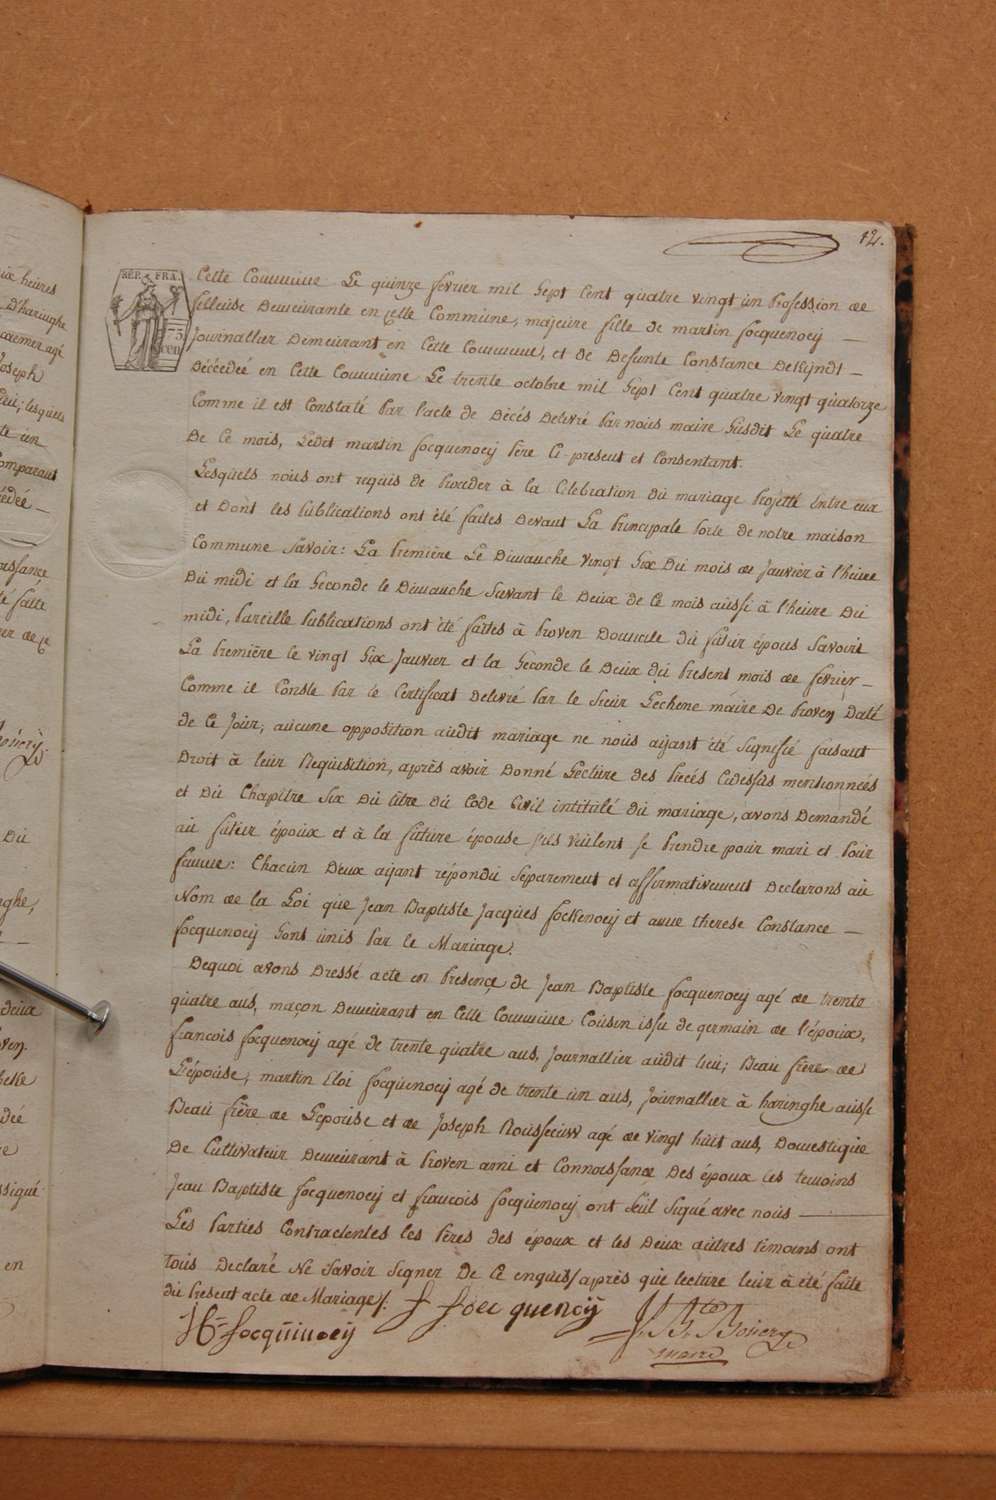 12.
REP. FRA.
75
cen
Cette Commune Le quinze fevrier mil Sept Cent quatre vingt un Profession de
filleuse Demeurante en cette Commune, majeure fille de martin focquenoeij
Journallier Demeurant en Cette Commune, et de Defunte Constance Dekijndt
Décédée en Cette Commune Le trente octobre mil Sept Cent quatre vingt quatorze
Comme il est Constaté par l'acte de Décés Delivré par nous maire susdit Le quatre
De Ce mois, Ledit martin focquenoeij Père Ci present et Consentant.
Lesquels nous ont requis de Proceder à la Célébration du mariage Projetté Entre eux
et Dont les Publications ont été faites Devant La Principale Porte de notre maison
Commune Savoir: La Premiére Le Dimanche vingt Six Du mois de Janvier à l'heure
Du midi et la Seconde le Dimanche Suivant le Deux de Ce mois aussi à l'heure Du
midi, Pareille Publications ont été faites à Proven Domicile du futur épous Savoir
La Premiére le vingt Six Janvier et la Seconde le Deux du Present mois de fevrier
Comme il Conste Par le Certificat Delivré par le Sieur Gechene maire De Proven Daté
de Ce Jour, aucune opposition audit mariage ne nous aijant été Signifié faisant
Droit à leur Requisition, après avoir Donné Lecture des Piecés Cidessus mentionneés
et Du Chapitre Six Du titre Du Code Civil intitulé du mariage, avons Demandé
au futur époux et à la future épouse s'ils veulent se Prendre pour mari et Pour
femme: Chacun D'eux aijant répondu Séparement et affirmativement Declarons au
Nom de la Loi que Jean Baptiste Jacques fockenoeij et anne therese Constance
focquenoeij Sont unis Par le Mariage.
Dequoi avons Dressé acte en Presence de Jean Baptiste focquenoeij agé de trente
quatre ans, maçon Demeurant en Cette Commune Cousin issu de germain de l'époux,
francois focquenoeij agé de trente quatre ans, Journallier audit lieu; Beau frère de
L'épouse; martin Eloi focquenoeij agé de trente un ans, Journallier à haringhe aussi
Beau frère de L'epouse et de Joseph Rousseeuw agé de vingt huit ans, Domestique
De Cultivateur Demeurant à Proven ami et Connoissance Des époux les temoins
Jean Baptiste focquenoeij et francois focquenoeij ont Seul Signé avec nous
Les Parties Contractentes les Péres des époux et les Deux autres témoins ont
tous Declaré Ne Savoir Signer De Ce enquis/après que lecture leur à été faite
du Present acte de Mariage/.
f foec quenoeij
focquinoeij
maire